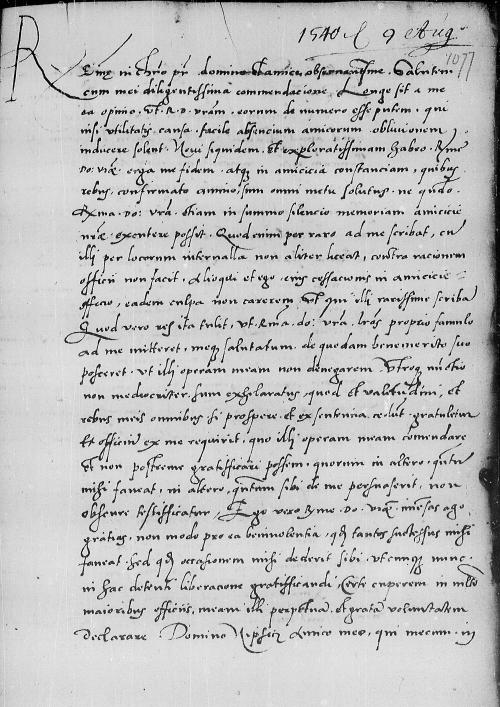 1540 9 Aug
1077
Rme in chro pr domine et amice observantissme. Salutem
cum mei diligentissima commendacione. Longe sit a me
ea opinio, ut R. D. vram, eorum de numero esse putem, qui
nisi utilitatis causa, facile absencium amicorum oblivionem
inducere solent. Novi siquidem, et exploratissimam habeo. Rme
Do: vrae erga me fidem, atq in amicicia constanciam, quibus
rebus, confirmato animo, sum omni metu solutus, ne quido
Rma. Do: vra. etiam in summo silencio memoriam amicicie
nrae excutere posset. Quod enim per raro ad me scribat, cu
illi per locorum intervalla non aliter liceat, contra racionem
officii non facit, Alioqui et ego eius cessacionis in amicicie
officio, eadem culpa non carerem, ut qui illi rarissime scriba
Quod vero res ita tulit, ut Rma. do: vra. lras proprio famulo
ad me mitteret, meq salutatum de quodam benemerito suo
posceret, ut illi operam meam non denegarem. Utroq nunctio
non mediocriter sum exhilaratus, quod et valitudini, et
rebus meis omnibus, si prospere et ex sentencia cedut, gratuletur
Et officium ex me requirit, quo illi operam meam comendare
Et non postreme gratificari possem, quorum in altero, quatu
mihi faveat, in altero, quatum sibi de me persuaserit, non
obscure testificatur, Ego vero Rme. Do: vrae imesas ago
gratias, non modo pro ea benivolentia, qd tantos successus mihi
faveat. Sed qd occasionem mihi dederit sibi utcunq nunc
in hac detenti liberacione gratifficandi, Certe cuperem in multo
maioribus officiis, meam illi perpetua, et grata voluntatem
declarare Domino amico meo, qui mecum in